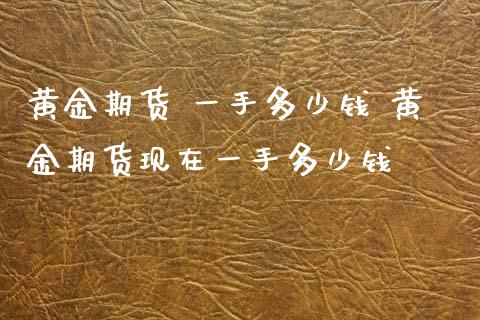 黄金期货 一手多少钱 黄
金期货现在一手多少钱